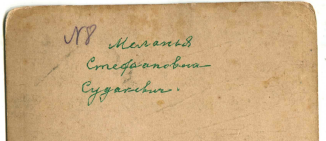 N8
Меланья
Стефановна
Судакевич.